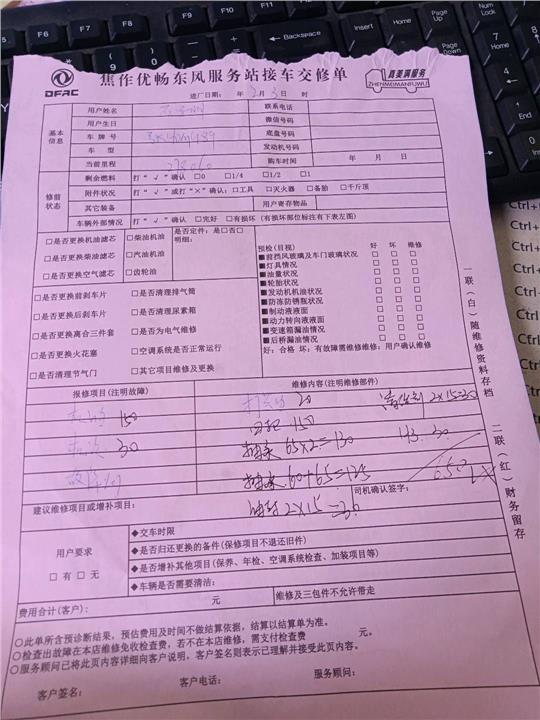 焦作优畅东风服务站接车交修单
DFAC
真美满服务
ZHENMEIMANFUWU
进厂日期： 年 2月 3日 时
基本信息
用户姓名 联系电话
用户生日 微信号码
车牌号 底盘号码
车型 发动机号码
当前里程 购车时间 年 月 日
修前状态
剩余燃料 打“√”确认 □0 □1/4 □1/2 □1
附件状况 打“√”或打“×”确认：□工具 □灭火器 □备胎 □千斤顶
其它装备 用户寄存物品
车辆外部情况 打“√”确认 □完好 □有损坏（有损坏部位标注有下表左图）
□是否更换机油滤芯 □柴油机油 是否定件：是□否□
□是否更换柴油滤芯 □汽油机油 明细：
□是否更换空气滤芯 □齿轮油
□是否更换前刹车片 □是否清理排气筒
□是否更换后刹车片 □是否清理尿素箱
□是否更换离合三件套 □是否为电气维修
□是否更换火花塞 □空调系统是否正常运行
□是否清理节气门 □其它项目维修及更换
预检（目视） 好 坏 维修
■前挡风玻璃及车门玻璃状况 □ □ □
■灯具情况 □ □ □
■油量状况 □ □ □
■轮胎状况 □ □ □
■发动机机油状况 □ □ □
■防冻防锈瓶状况 □ □ □
■制动液液面 □ □ □
■动力转向液液面 □ □ □
■变速箱漏油情况 □ □ □
■后桥漏油情况 □ □ □
好：合格 坏：有故障需维修维修：用户确认维修
报修项目（注明故障） 维修内容（注明维修部件）
20 2×15=30
150 150
30 65×2=130 43.30
60+65=125
2×15=30
建议维修项目或增补项目：
司机确认签字：
用户要求
□有 □无
◆交车时限
◆是否归还更换的备件（保修项目不退还旧件）
◆是否增补其他项目（保养、年检、空调系统检查、加装项目等）
◆车辆是否需要清洁：
费用合计（客户）： 元 维修及三包件不允许带走
○此单所含预诊断结果，预估费用及时间不做结算依据，结算以结算单为准。
○检查出故障在本店维修免收检查费，若不在本店维修，需支付检查费 元。
○服务顾问已将此页内容详细向客户说明，客户签名则表示已理解并接受此页内容。
客户签名： 客户电话： 服务顾问：
一联（白）随维修资料存档
二联（红）财务留存
Insert
Backspace
Home
Num Lock
PgUp
PgDn
End
Delete
Ctrl+
Ctrl+
Ctrl+
Ctrl+
Ctrl+
Ctrl+